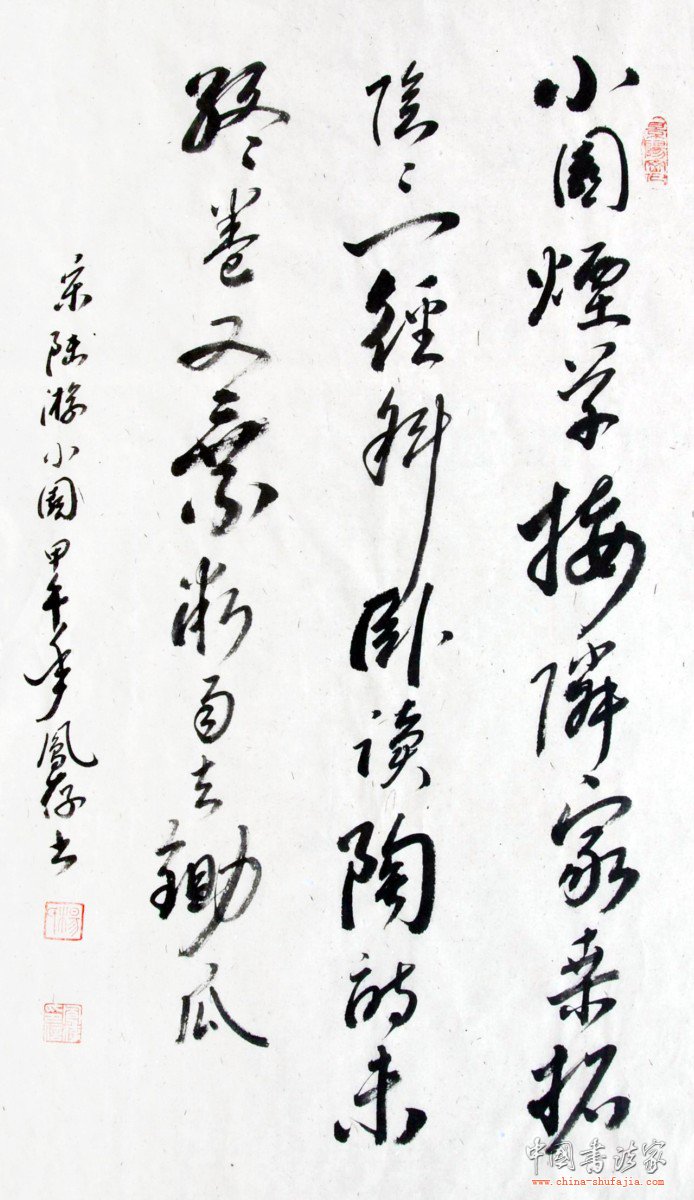 小園煙草接隣家桑柘
陰陰一徑斜卧讀陶詩未
終卷又乘微雨去鋤瓜
宋陸游小園甲午年鳳存书
中国書法家
www.china-shufajia.com